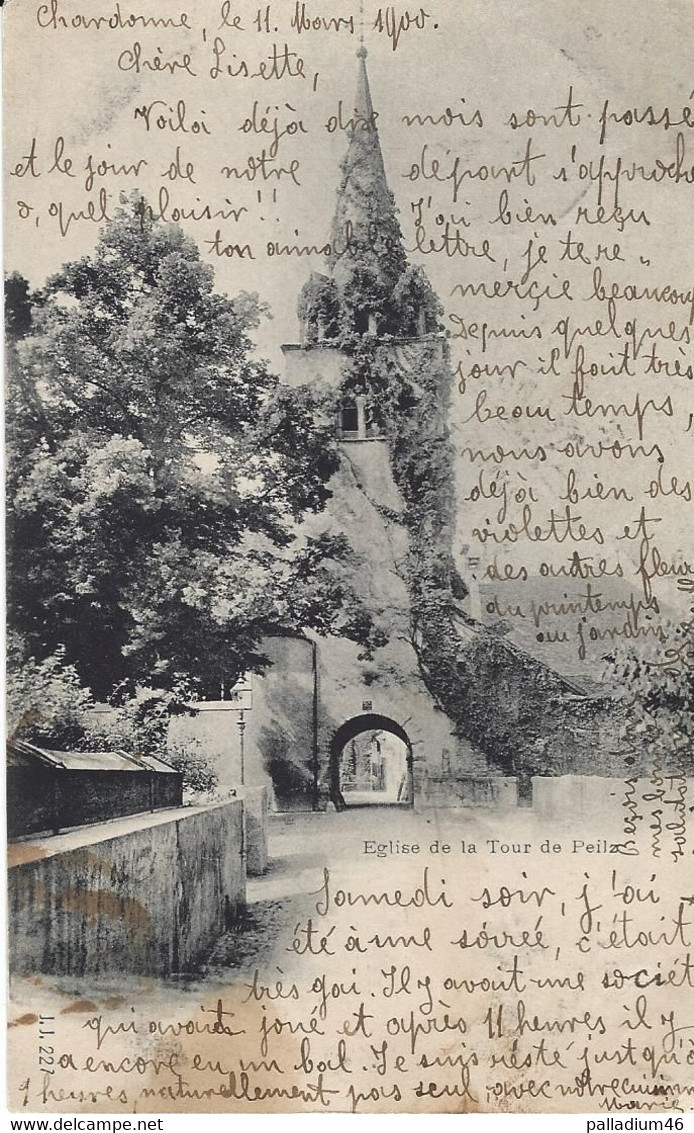 Chardonne, le 11. Mars 1900.
Chère Lisette,
Voilà déjà dix mois sont passé
et le jour de nôtre départ s'approche
ô, quel plaisir!! J'ai bien reçu
ton aimable lettre, je te re„
merçie beaucoup
Depuis quelques
jour il fait très
beau temps,
nous avons
déjà bien des
violettes et
des autres fleur
du printemps
au jardin
Reçois
mes bon
salutat
Eglise de la Tour de Peilz
Samedi soir, j'ai
été à une soirée, c'était
très gai. Il y avait une sociét
qui avait joué et après 11 heures il y
a encore eu un bal. Je suis resté jusqu'à
heures, naturellement pas seul, avec nôtre cuisin
Marie.
J.J. 227
palladium46